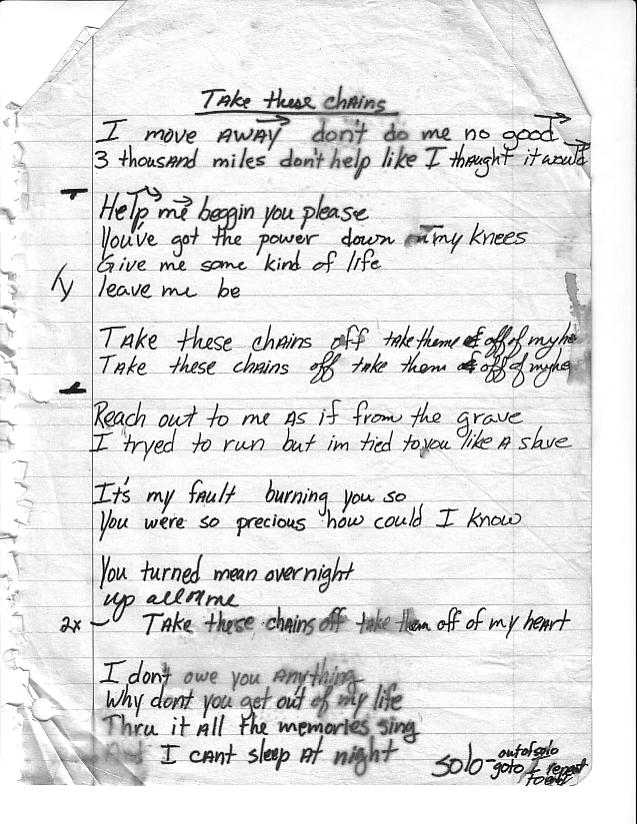 Take these chains
I move AWAY don't do me no good
3 thousand miles don't help like I thought it would
Help me beggin you please
You've got the power down on my knees
Give me some kind of life
leave me be
Take these chains off take them off of my he
Take these chains off take them off of my he
Reach out to me As if from the grave
I tryed to run but im tied to you like A slave
It's my fault burning you so
You were so precious how could I know
You turned mean overnight
up all
2x - Take these chains off take them off of my heart
I don't owe you Anything
Why dont you get out of my life
Thru it All the memories sing
And I cant sleep At night
solo - out of solo
goto repeat
to end